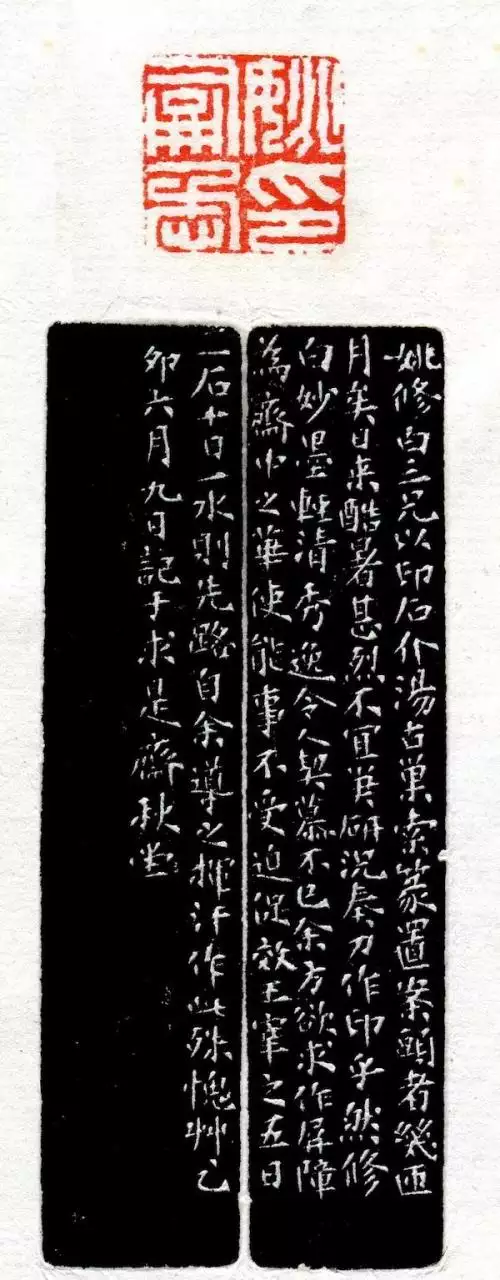 姚印
志
姚修白三兄以印石介湯古巢索篆置案頭者幾匝
月矣日來酷暑甚烈不宜筆研況奏刀作印乎然修
白妙墨輕清秀逸令人契慕不已余方欲求作屏障
為齋中之華使能事不受迫促效王宰之五日
一石十日一水則先路自余導之揮汗作此殊愧艸乙
卯六月九日記于求是齋秋堂